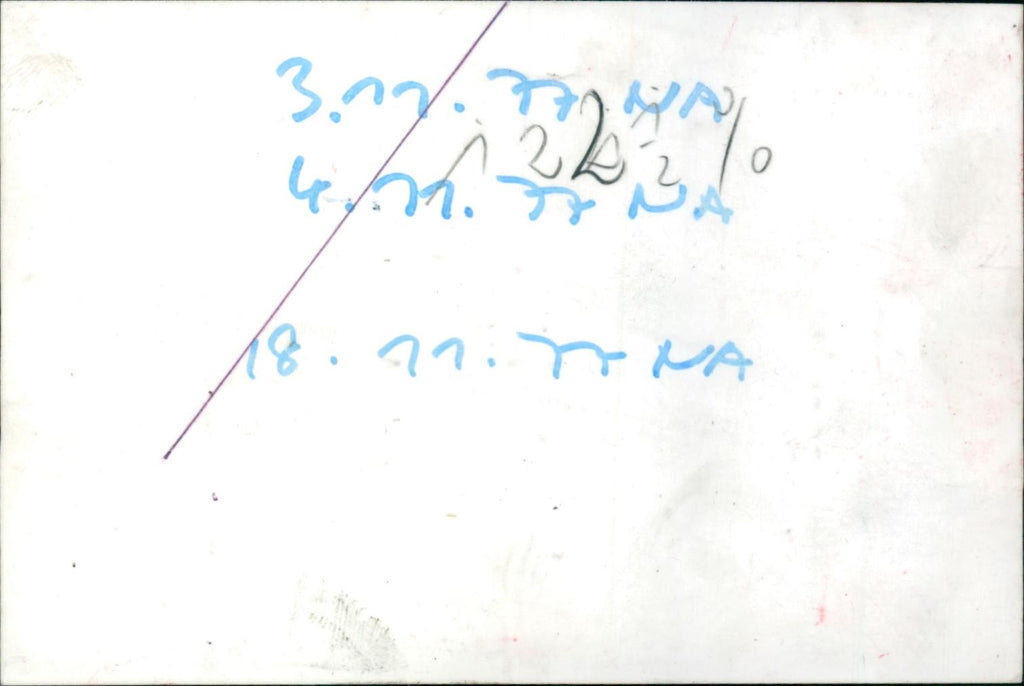 3.11.77 NA
122 1/2 %
4.11.77 NA
18.11.77 NA